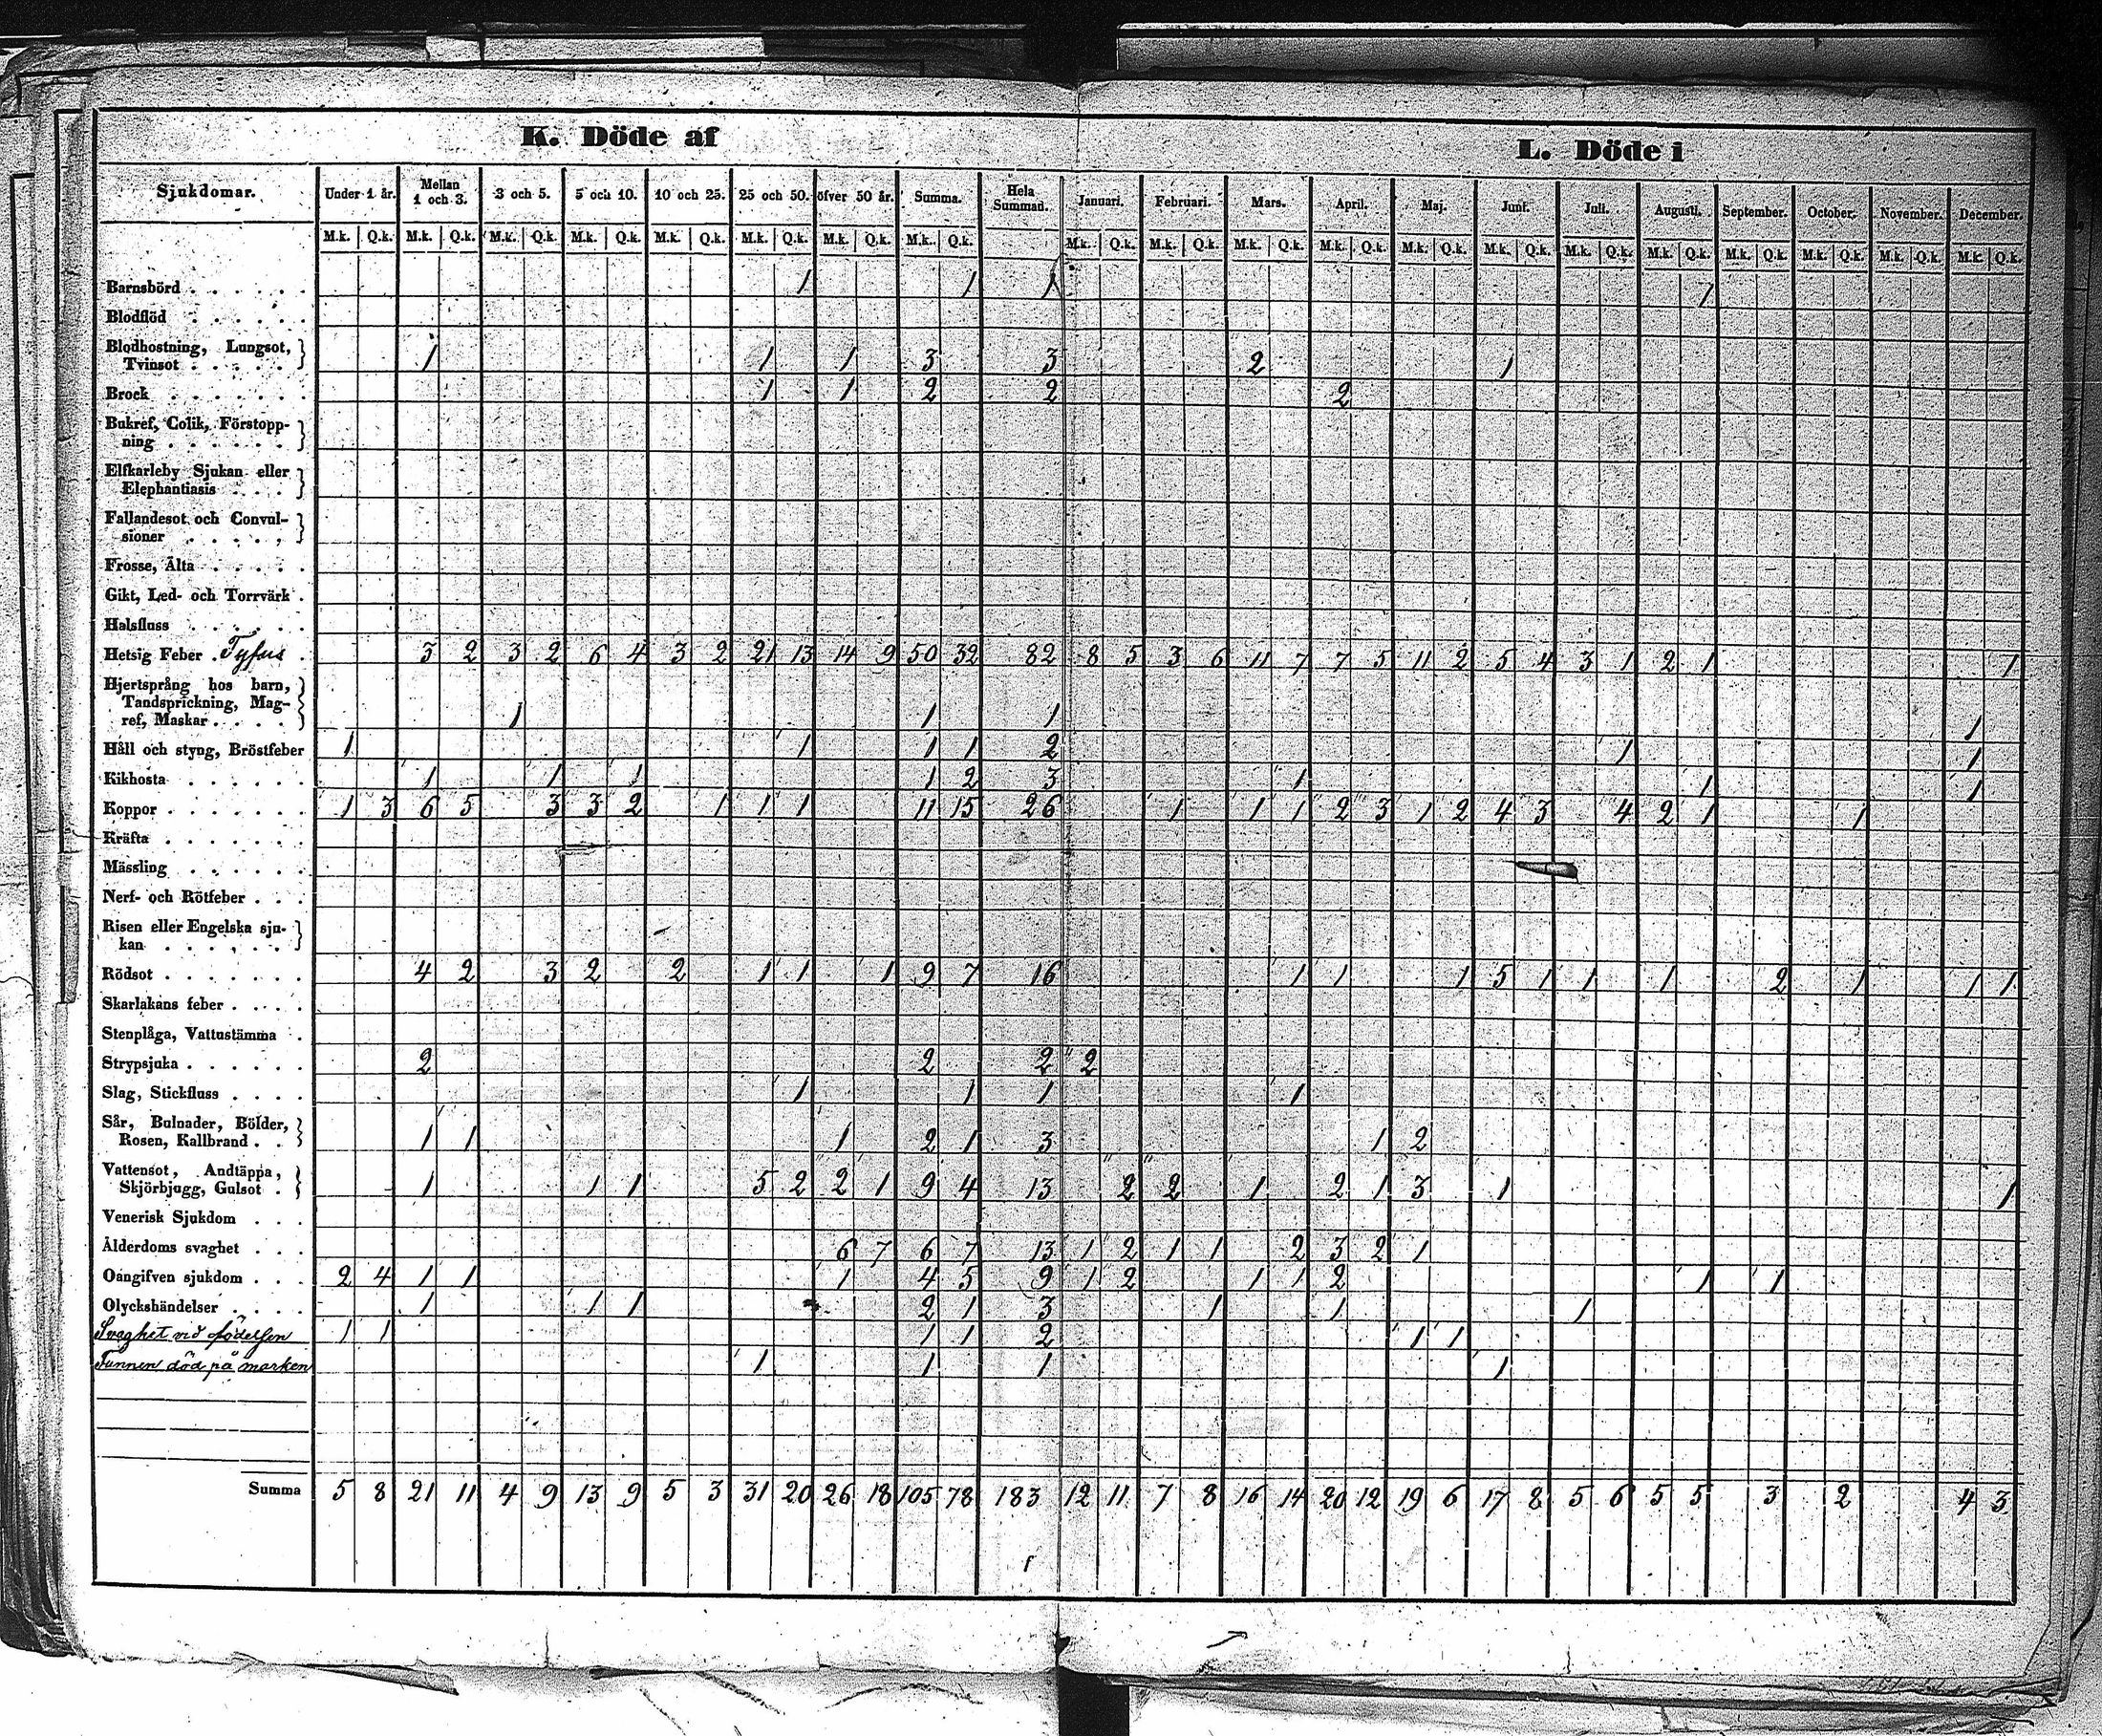 K. Döde af
L. Döde i
Sjukdomar. Under 1 år. Mellan 1 och 3. 3 och 5. 5 och 10. 10 och 25. 25 och 50. öfver 50 år. Summa. Hela Summad. Januari. Februari. Mars. April. Maj. Juni. Juli. Augusti. September. October. November. December.
M.k. Q.k. M.k. Q.k. M.k. Q.k. M.k. Q.k. M.k. Q.k. M.k. Q.k. M.k. Q.k. M.k. Q.k. M.k. Q.k. M.k. Q.k. M.k. Q.k. M.k. Q.k. M.k. Q.k. M.k. Q.k. M.k. Q.k. M.k. Q.k. M.k. Q.k. M.k. Q.k. M.k. Q.k. M.k. Q.k.
Barnsbörd 1 1 1 1
Blodflöd
Blodhostning, Lungsot,
Tvinsot 1 1 1 3 3 2 1
Brock 1 1 2 2 2
Bukref, Colik, Förstopp-
ning
Elfkarleby Sjukan eller
Elephantiasis
Fallandesot och Convul-
sioner
Frosse, Älta
Gikt, Led- och Torrvärk
Halsfluss
Hetsig Feber Tyfus 3 2 3 2 6 4 3 2 21 13 14 9 50 32 82 8 5 3 6 11 7 7 5 11 2 5 4 3 1 2 1 1
Hjertsprång hos barn,
Tandsprickning, Mag-
ref, Maskar 1 1 1 1
Håll och styng, Bröstfeber 1 1 1 1 2 1 1
Kikhosta 1 1 1 1 2 3 1 1 1
Koppor 1 3 6 5 3 3 2 1 1 1 11 15 26 1 1 1 2 3 1 2 4 3 4 2 1 1
Kräfta
Mässling
Nerf- och Rötfeber
Risen eller Engelska sju-
kan
Rödsot 4 2 3 2 2 1 1 1 9 7 16 1 1 1 5 1 1 1 2 1 1 1
Skarlakans feber
Stenplåga, Vattustämma
Strypsjuka 2 2 2 2
Slag, Stickfluss 1 1 1 1
Sår, Bulnader, Bölder,
Rosen, Kallbrand 1 1 1 2 1 3 1 2
Vattensot, Andtäppa,
Skjörbjugg, Gulsot 1 1 1 5 2 2 1 9 4 13 2 2 1 2 1 3 1 1
Venerisk Sjukdom
Ålderdoms svaghet 6 7 6 7 13 1 2 1 1 2 3 2 1
Oangifven sjukdom 2 4 1 1 1 4 5 9 1 2 1 1 2 1 1
Olyckshändelser 1 1 1 2 1 3 1 1 1
Svaghet vid födelsen 1 1 1 1 2 1 1
Funnen död på marken 1 1 1 1
Summa 5 8 21 11 4 9 13 9 5 3 31 20 26 18 105 78 183 12 11 7 8 16 14 20 12 19 6 17 8 5 6 5 5 3 2 4 3